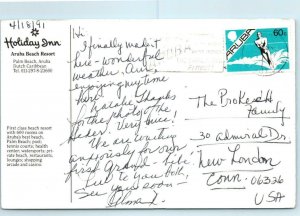 4/18/91
Holiday Inn
Aruba Beach Resort
Palm Beach, Aruba
Dutch Caribbean
Tel. 011/297-8-23600
First class beach resort
with 600 rooms on
Aruba's best beach,
Palm Beach; pool;
tennis courts; health
center; watersports; pri-
vate beach, restaurants,
lounges; shopping
arcade and casino.
Hi
I finally made it
here - wonderful
weather. Am
enjoying my time
here.
Thanks
for the photo of the
Seder. Very nice!
We are waiting
anxiously for our
first Grand-
Love to you both
See you soon -
ARUBA
60c
The
Family
30 Admiral Dr.
New London
Conn. 06320
USA